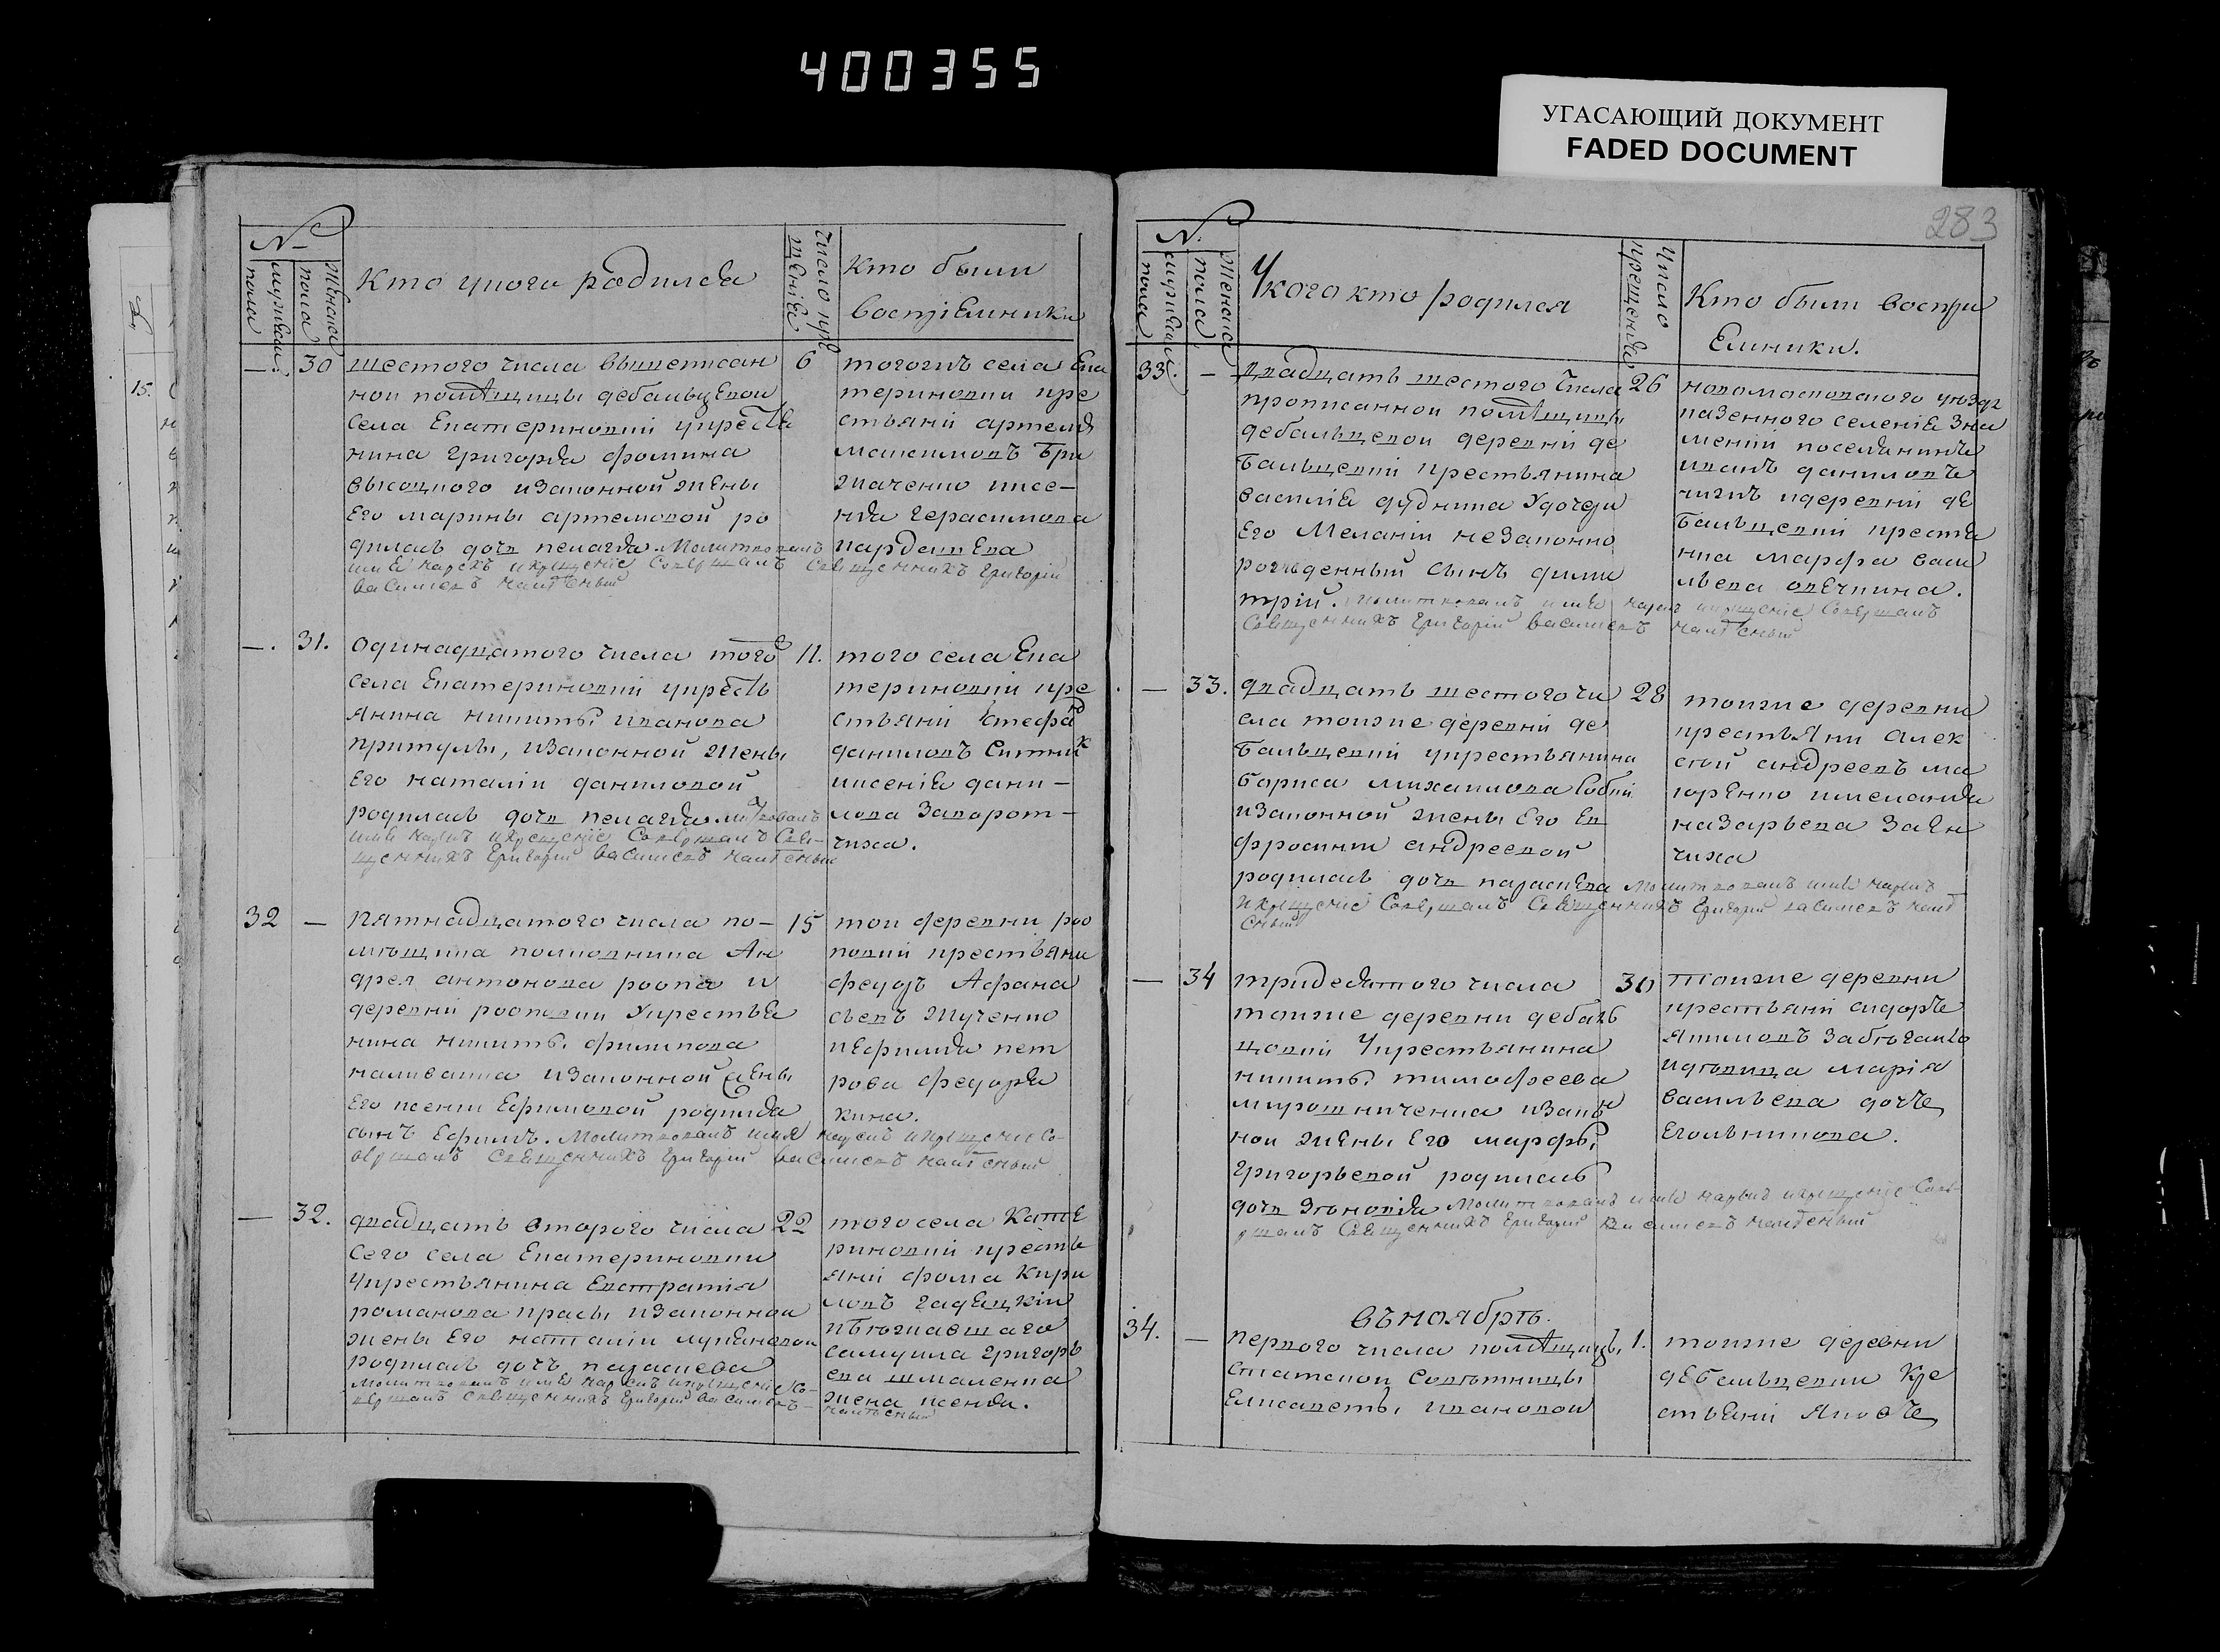 400355
УГАСАЮЩИЙ ДОКУМЕНТ
FADED DOCUMENT
283
№
мужеска пола
женска пола
Кто у кого родился
число крещения
Кто были
восприемники
30
шестого числа вышеписан
ной помѣщицы дебальцевой
села Екатериновки у кресть
янина григория фомина
высоцкого и законной жены
его марины артемовой ро
дилась дочь пелагия. Молитвовалъ
имя нарекъ и крещение совершалъ священникъ григорий
василиевъ
6
тогожъ села Ека
териновки кре
стьяни артемий
максимовъ
герасимова
31.
одинадцатого числа того
села Екатериновки у кресть
янина никиты иванова
притулы, и законной жены
его наталии даниловой
родилась дочь пелагия
имя нарекъ и крещение совершалъ свя-
щенникъ григорий василиевъ
11.
того села Ека
териновки кре
стьяни стефа
даниловъ ситник
ксения дани-
лова запорож-
чиха.
32
пятнадцатого числа по-
мѣщика полковника Ан
дрея антонова роопа и
деревни рооповки у крестья
нина никиты филипова
и законной жены
его ксении Ефимовой родился
сынъ Ефимъ. Молитвовалъ имя нарекъ и крещение со-
вершалъ священникъ григорий василиевъ
15
той деревни роо
повки крестьяни
федоръ Афана
сьевъ жученко
и Ефимия пет
рова федоря
кина.
32.
двадцать второго числа
сего села Екатериновки
у крестьянина Евстратия
романова прасы и законной
жены его наталии лукяновой
родилась дочь параскева
Молитвовалъ имя нарекъ и крещение со-
вершалъ священникъ григорий василиевъ
22
того села Кате
риновки кресть
яни фома Кири
ловъ гадяцкий
самуила григорь
ева шмаленка
жена ксения.
№
мужеска пола
женска пола
У кого кто родился
Число крещения
Кто были воспри
емники.
33.
двадцать шестого числа
прописанной помѣщицы
дебальцевой деревни де
бальцевки крестьянина
василия у дочери
его Мелании незаконно
рожденный сынъ дими
трий. молитвовалъ имя нарекъ и крещение совершалъ
священникъ григорий василиевъ
26
новомосковского уѣзда
казенного селения зна
менки поселянинъ
иванъ даниловъ
и деревни де
бальцевки крестья
нка марфа васи
льева овечкина.
33.
двадцать шестого чи
сла тойже деревни де
бальцевки у крестьянина
бориса михаилова
и законной жены его Ев
фросинии андреевой
родилась дочь параскева Молитвовалъ имя нарекъ
и крещение совершалъ священникъ григорий василиевъ
28
тойже деревни
крестьяни алек
сей андреевъ ма
назарьева заен
чиха
34
тридесятого числа
тойже деревни дебаль
цовки у крестьянина
никиты тимофеева
мирошниченка и закон
ной жены его марфы
григорьевой родилась
дочь Зѣновия Молитвовалъ имя нарекъ и крещение сове-
ршалъ священникъ григорий василиевъ
30
тойже деревни
крестьяни сидоръ
якимовъ
и дѣвица мария
васильева дочь
въ ноябрѣ.
34.
первого числа помѣщицы
статской совѣтницы
Елисаветы ивановой
1.
тойже деревни
дебальцевки кре
стьяни яковъ